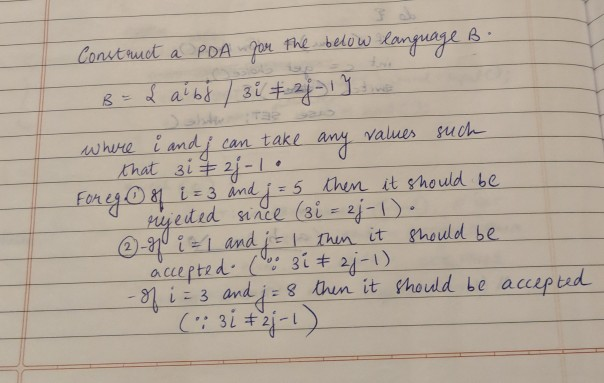 Construct a PDA for the below language B.
B = { aⁱbʲ / 3i ≠ 2j-1 }
where i and j can take any values such
that 3i ≠ 2j-1.
For eg ① If i = 3 and j = 5 then it should be
rejected since (3i = 2j-1).
② - If i = 1 and j = 1 then it should be
accepted. (∵ 3i ≠ 2j-1)
- If i = 3 and j = 8 then it should be accepted
(∵ 3i ≠ 2j-1)